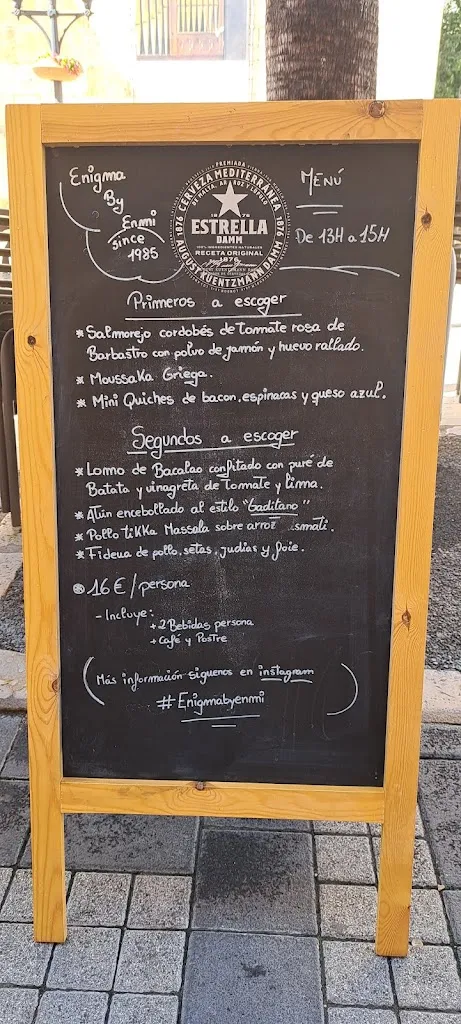 Enigma
By
Enmi
since
1985
PREMIADA
CERVEZA MEDITERRÁNEA
DE MALTA, ARROZ Y LÚPULO
1876
1876
ESTRELLA
DAMM
100% INGREDIENTES NATURALES
RECETA ORIGINAL
1876
AUGUST KUENTZMANN DAMM
MENÚ
De 13H a 15H
Primeros a escoger
* Salmorejo cordobés de tomate rosa de
Barbastro con polvo de jamón y huevo rallado.
* Moussaka Griega.
* Mini Quiches de bacon, espinacas y queso azul.
Segundos a escoger
* Lomo de Bacalao confitado con puré de
Batata y vinagreta de tomate y lima.
* Atún encebollado al estilo "Gaditano"
* Pollo tikka Massala sobre arroz smati.
* Fideua de pollo, setas, judias y foie.
16€/persona
- Incluye:
+ 2 Bebidas persona
+ Café y Postre
(Más información siguenos en instagram
#Enigmabyenmi)